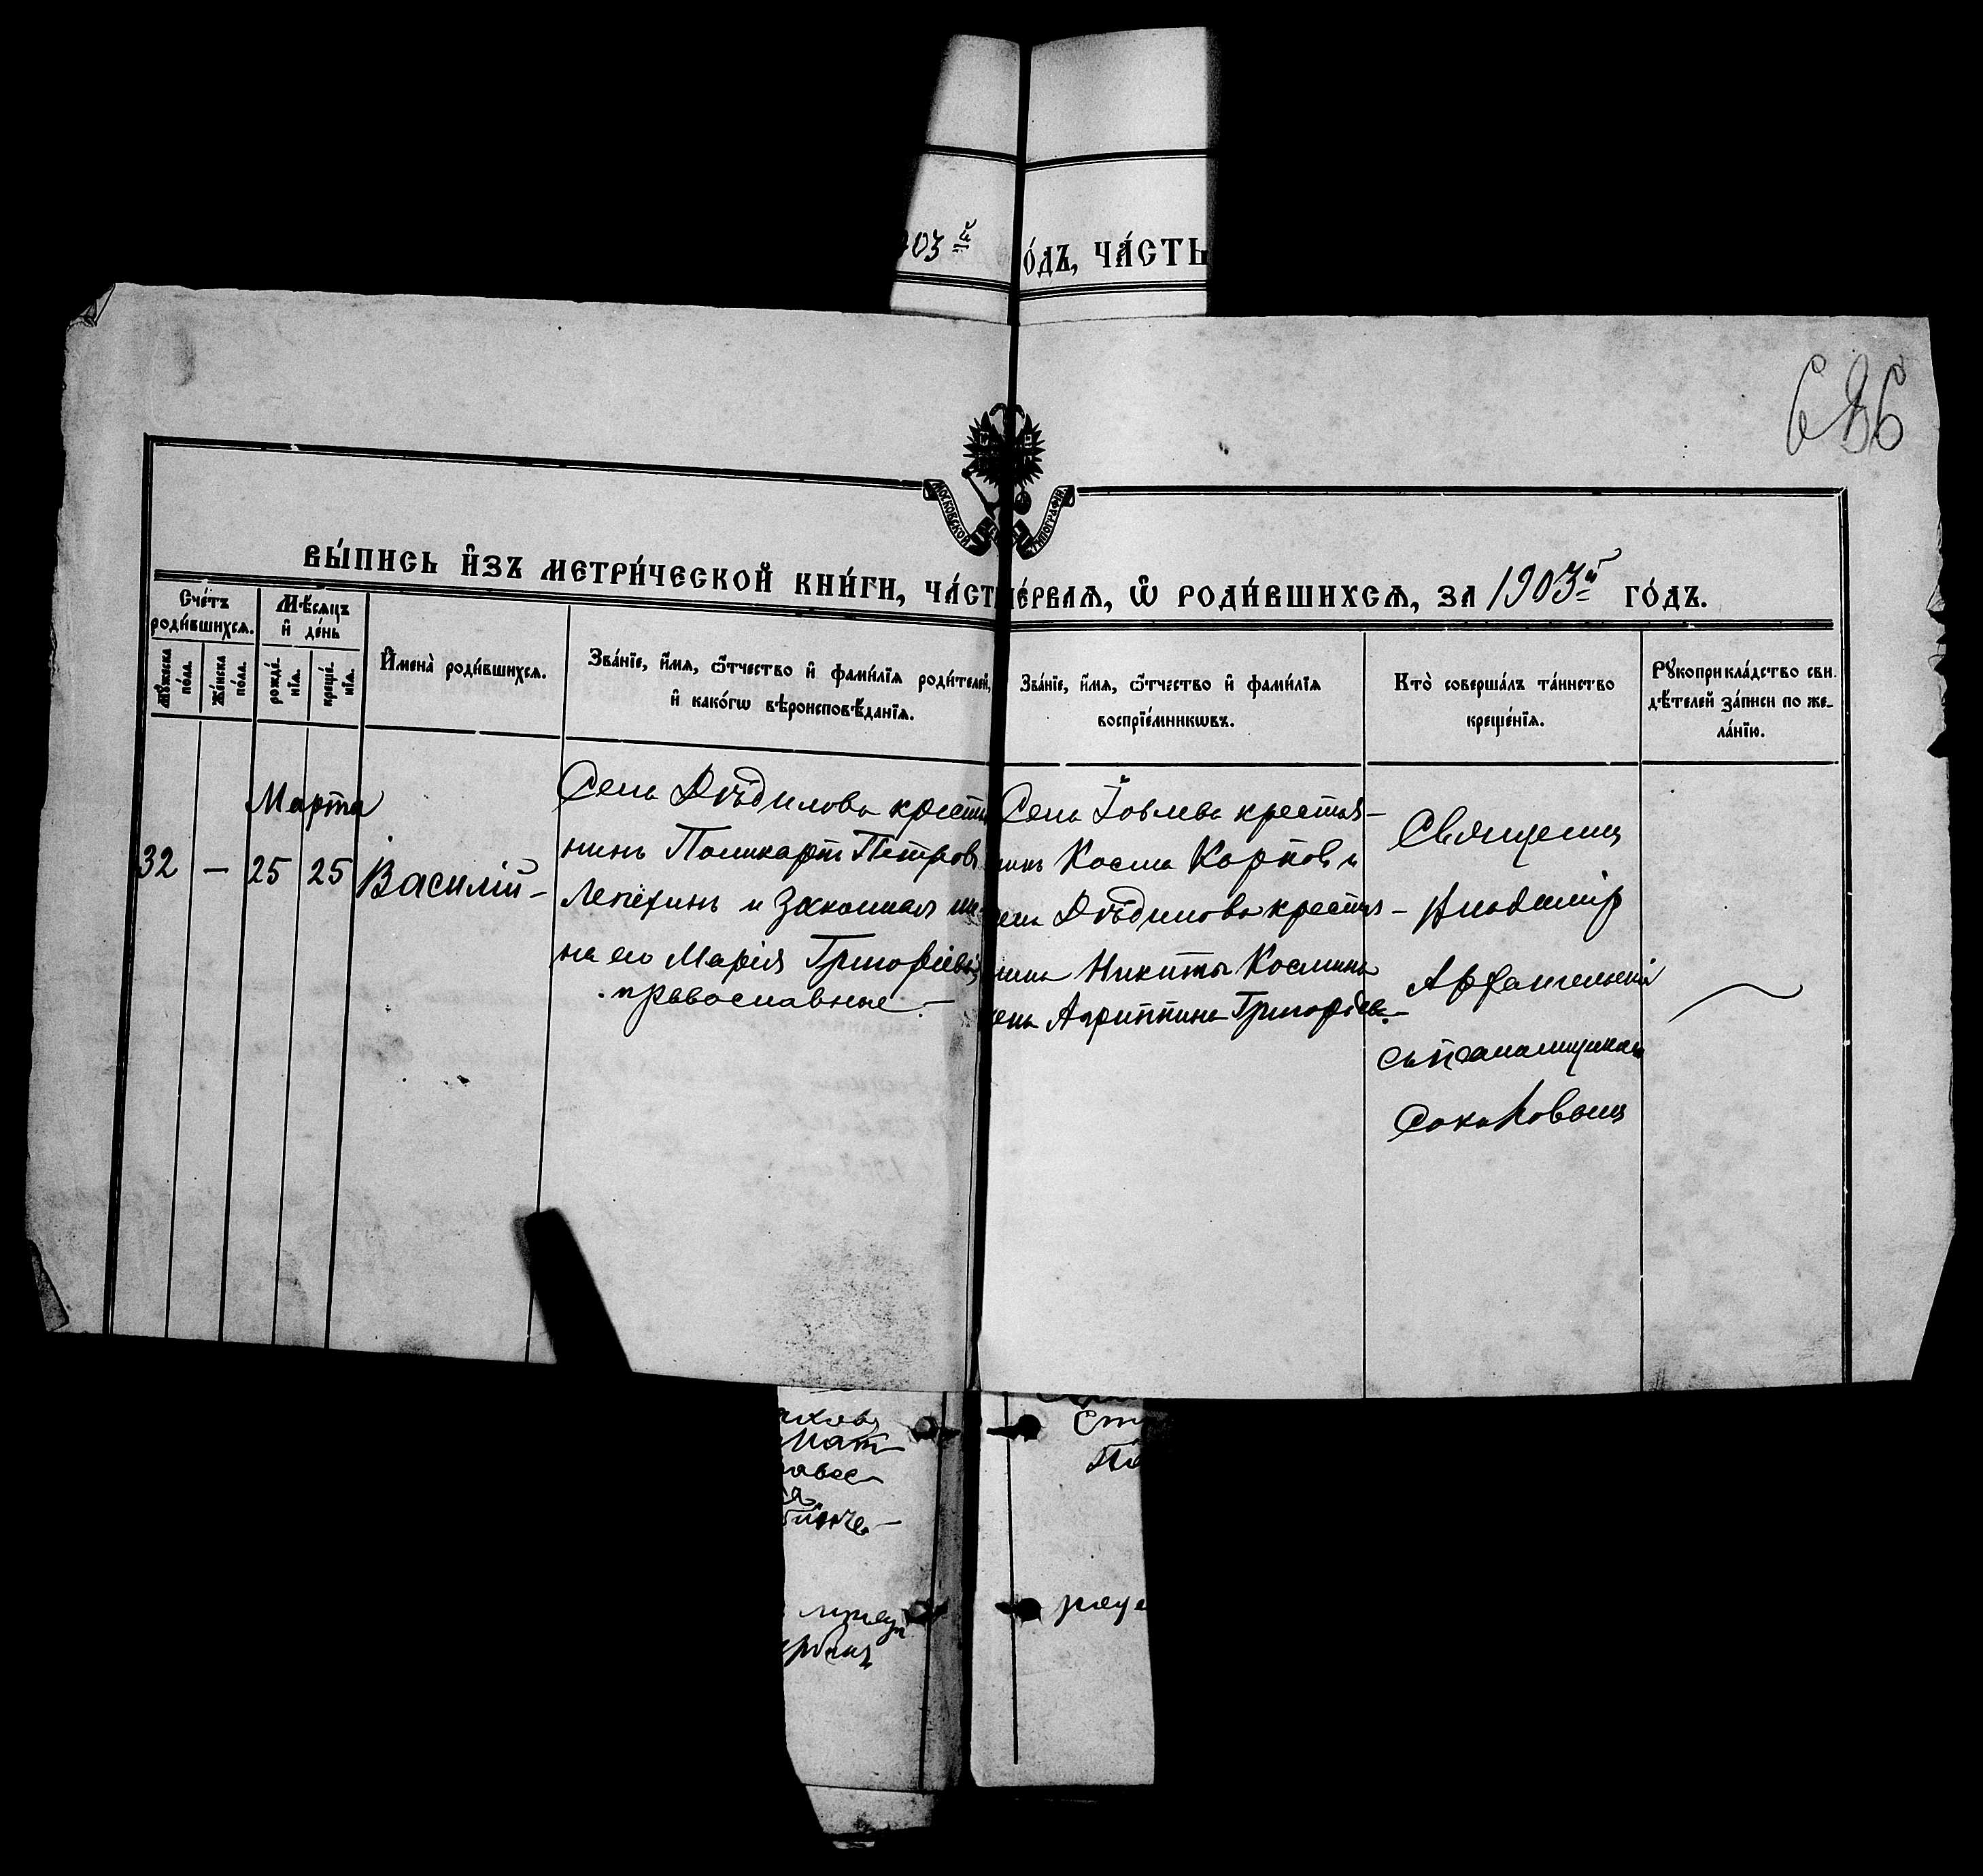 903 г.
о́дъ, ча́сть
686
московской
типографіи
вы́пись и҆зъ метри́ческой кни́ги, ча́ст пе́рваѧ, ѡ҆ роди́вшихсѧ, за 1903й го́дъ.
Сче́тъ роди́вшихсѧ.
Мѣ́сяцъ и҆ де́нь
Мꙋ́жеска по́ла.
Же́нска по́ла.
рожде́нїѧ.
креще́нїѧ.
И҆мена̀ роди́вшихсѧ.
Зва́нїе, и҆́мѧ, ѻ҆́тчество и҆ фами́лїѧ роди́телей,
и҆ како́гѡ вѣроисповѣ́данїѧ.
Зва́нїе, и҆́мѧ, ѻ҆́тчество и҆ фами́лїѧ
воспрїе́мникѡвъ.
Кто̀ соверша́лъ та́инство
креще́нїѧ.
Рꙋкоприкла́дство сви-
дѣ́телей за́писи по же-
ла́нїю.
Марта
32 — 25 25 Василій —
Села Дѣдилова крестья
нинъ Поликарп Петровъ
Лепёхинъ и законная же
на его Марія Григоріева,
православные. —
Села Іовлева крестья-
нинъ Косма Карповъ и
села Дѣдилова крестья-
нина Никиты Космина
жена Агриппина Григорьева. —
Священник
Владимір
Архангельскій
съ псаломщиком
Соколовым